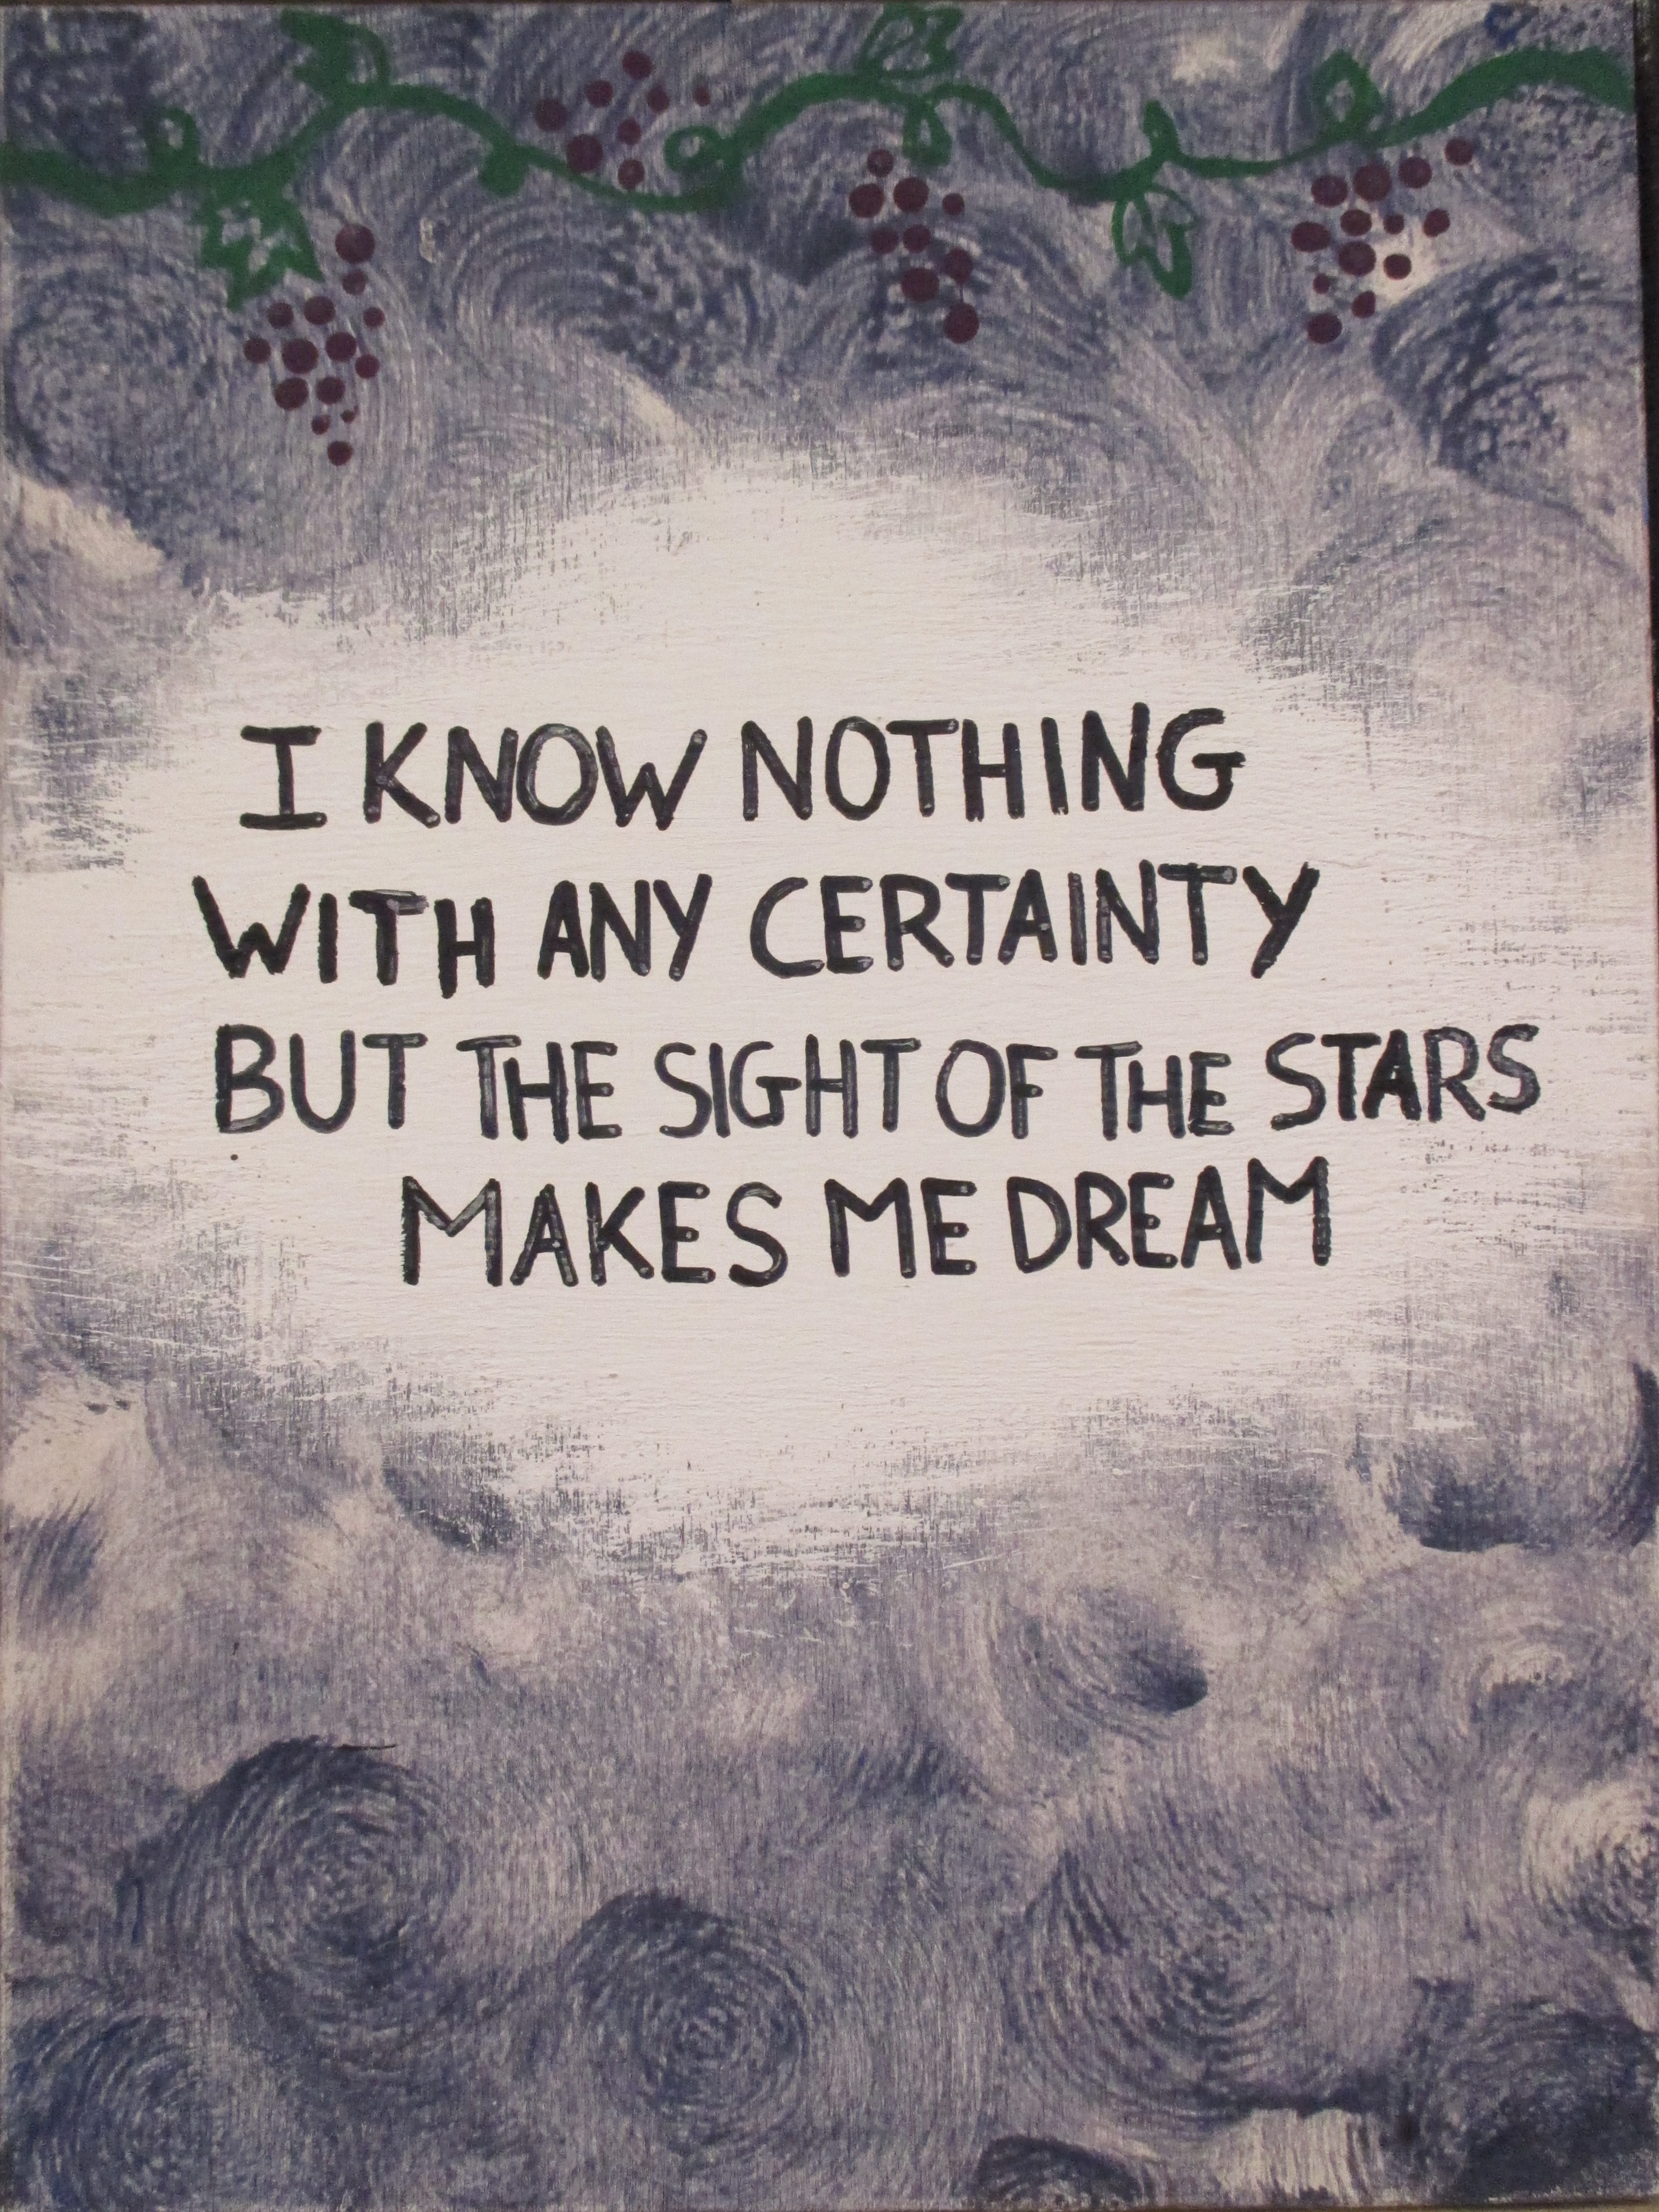 I KNOW NOTHING
WITH ANY CERTAINTY
BUT THE SIGHT OF THE STARS
MAKES ME DREAM